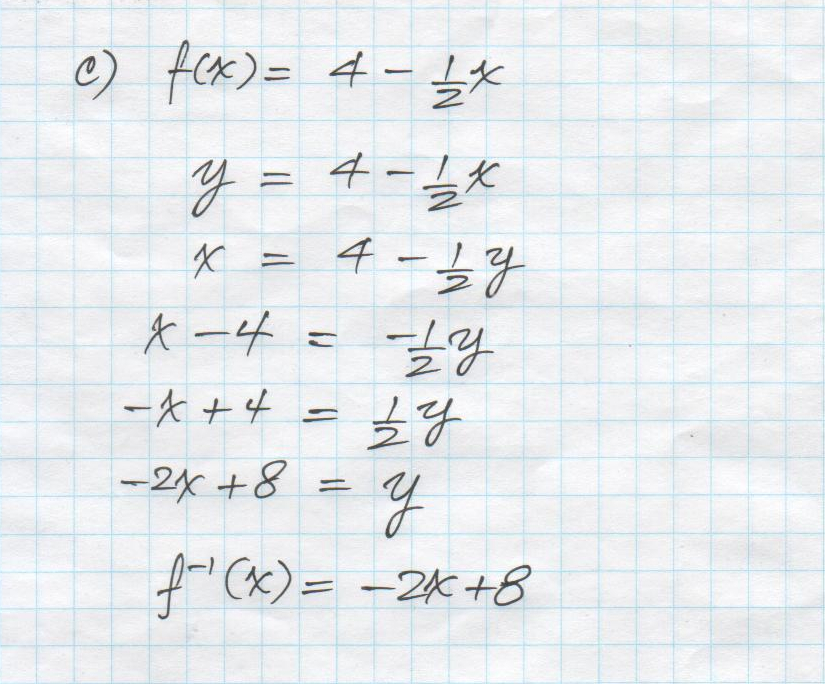 c) f(x) = 4 - 1/2 x
y = 4 - 1/2 x
x = 4 - 1/2 y
x - 4 = -1/2 y
-x + 4 = 1/2 y
-2x + 8 = y
f⁻¹(x) = -2x + 8